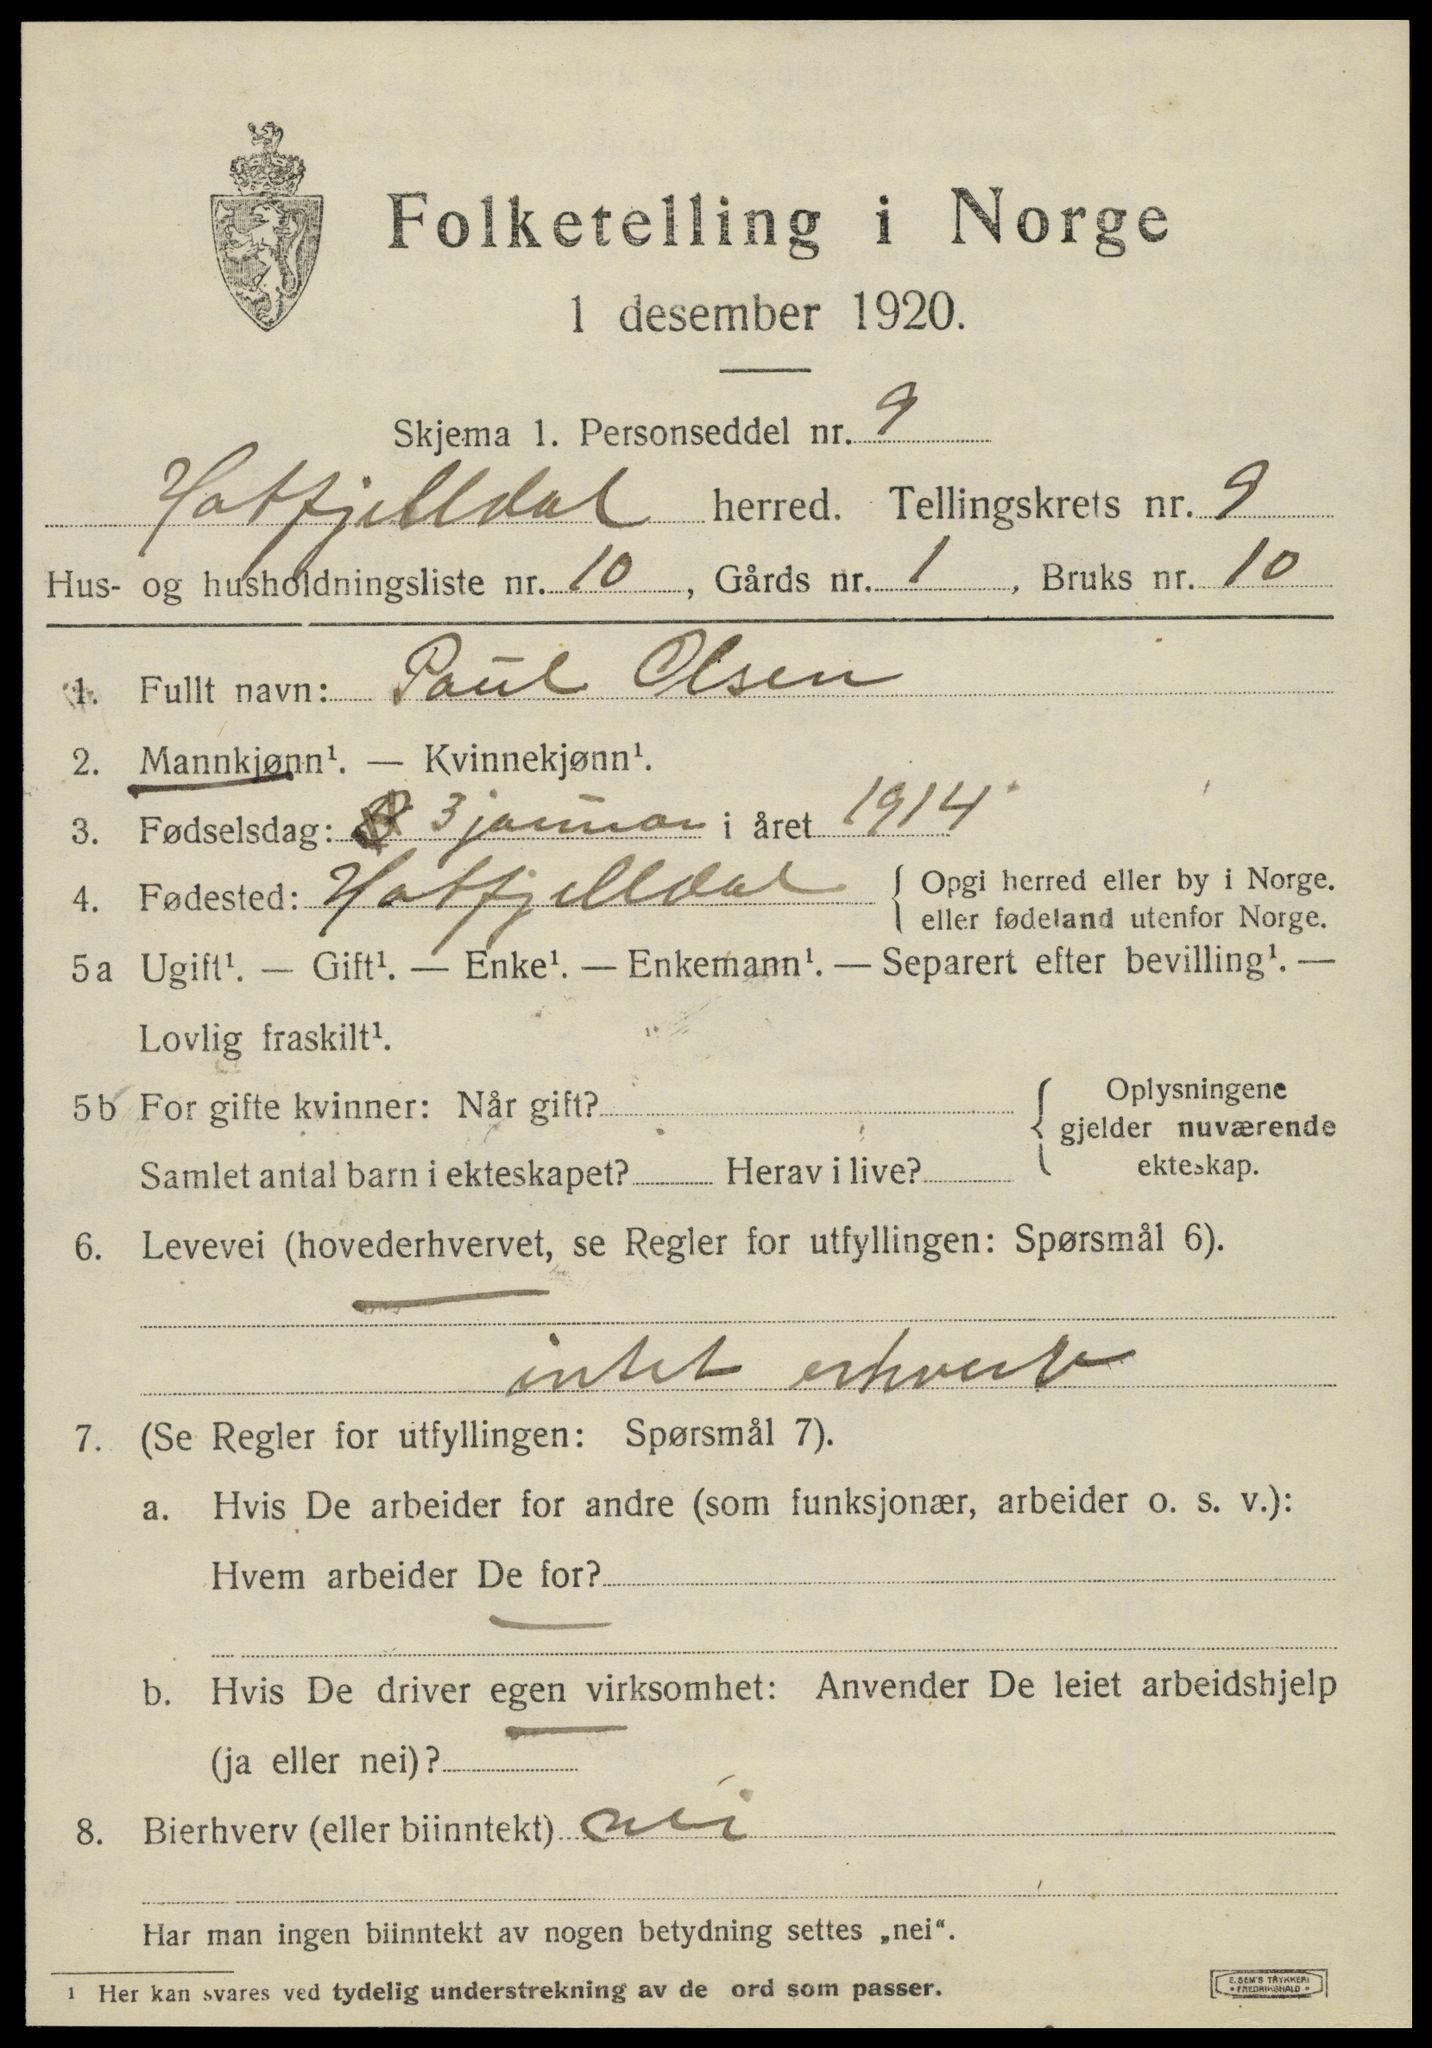 Folketelling i Norge
1 desember 1920.
Skjema 1. Personseddel nr. 9
Hatfjelldal herred. Tellingskrets nr. 9
Hus- og husholdningsliste nr. 10, Gårds nr. 1, Bruks nr. 10
1. Fullt navn: Paul Olsen
2. Mannkjønn¹. — Kvinnekjønn¹.
3. Fødselsdag: 3 januar i året 1914
4. Fødested: Hatfjelldal { Opgi herred eller by i Norge.
eller fødeland utenfor Norge.
5a Ugift¹. — Gift¹. — Enke¹. — Enkemann¹. — Separert efter bevilling¹. —
Lovlig fraskilt¹.
5b For gifte kvinner: Når gift? { Oplysningene
gjelder nuværende
Samlet antal barn i ekteskapet? Herav i live? ekteskap.
6. Levevei (hovederhvervet, se Regler for utfyllingen: Spørsmål 6).
intet erhverv
7. (Se Regler for utfyllingen: Spørsmål 7).
a. Hvis De arbeider for andre (som funksjonær, arbeider o. s. v.):
Hvem arbeider De for?
b. Hvis De driver egen virksomhet: Anvender De leiet arbeidshjelp
(ja eller nei)?
8. Bierhverv (eller biinntekt) nei
Har man ingen biinntekt av nogen betydning settes „nei“.
¹ Her kan svares ved tydelig understrekning av de ord som passer.
E. SEM'S TRYKKERI
FREDRIKSHALD